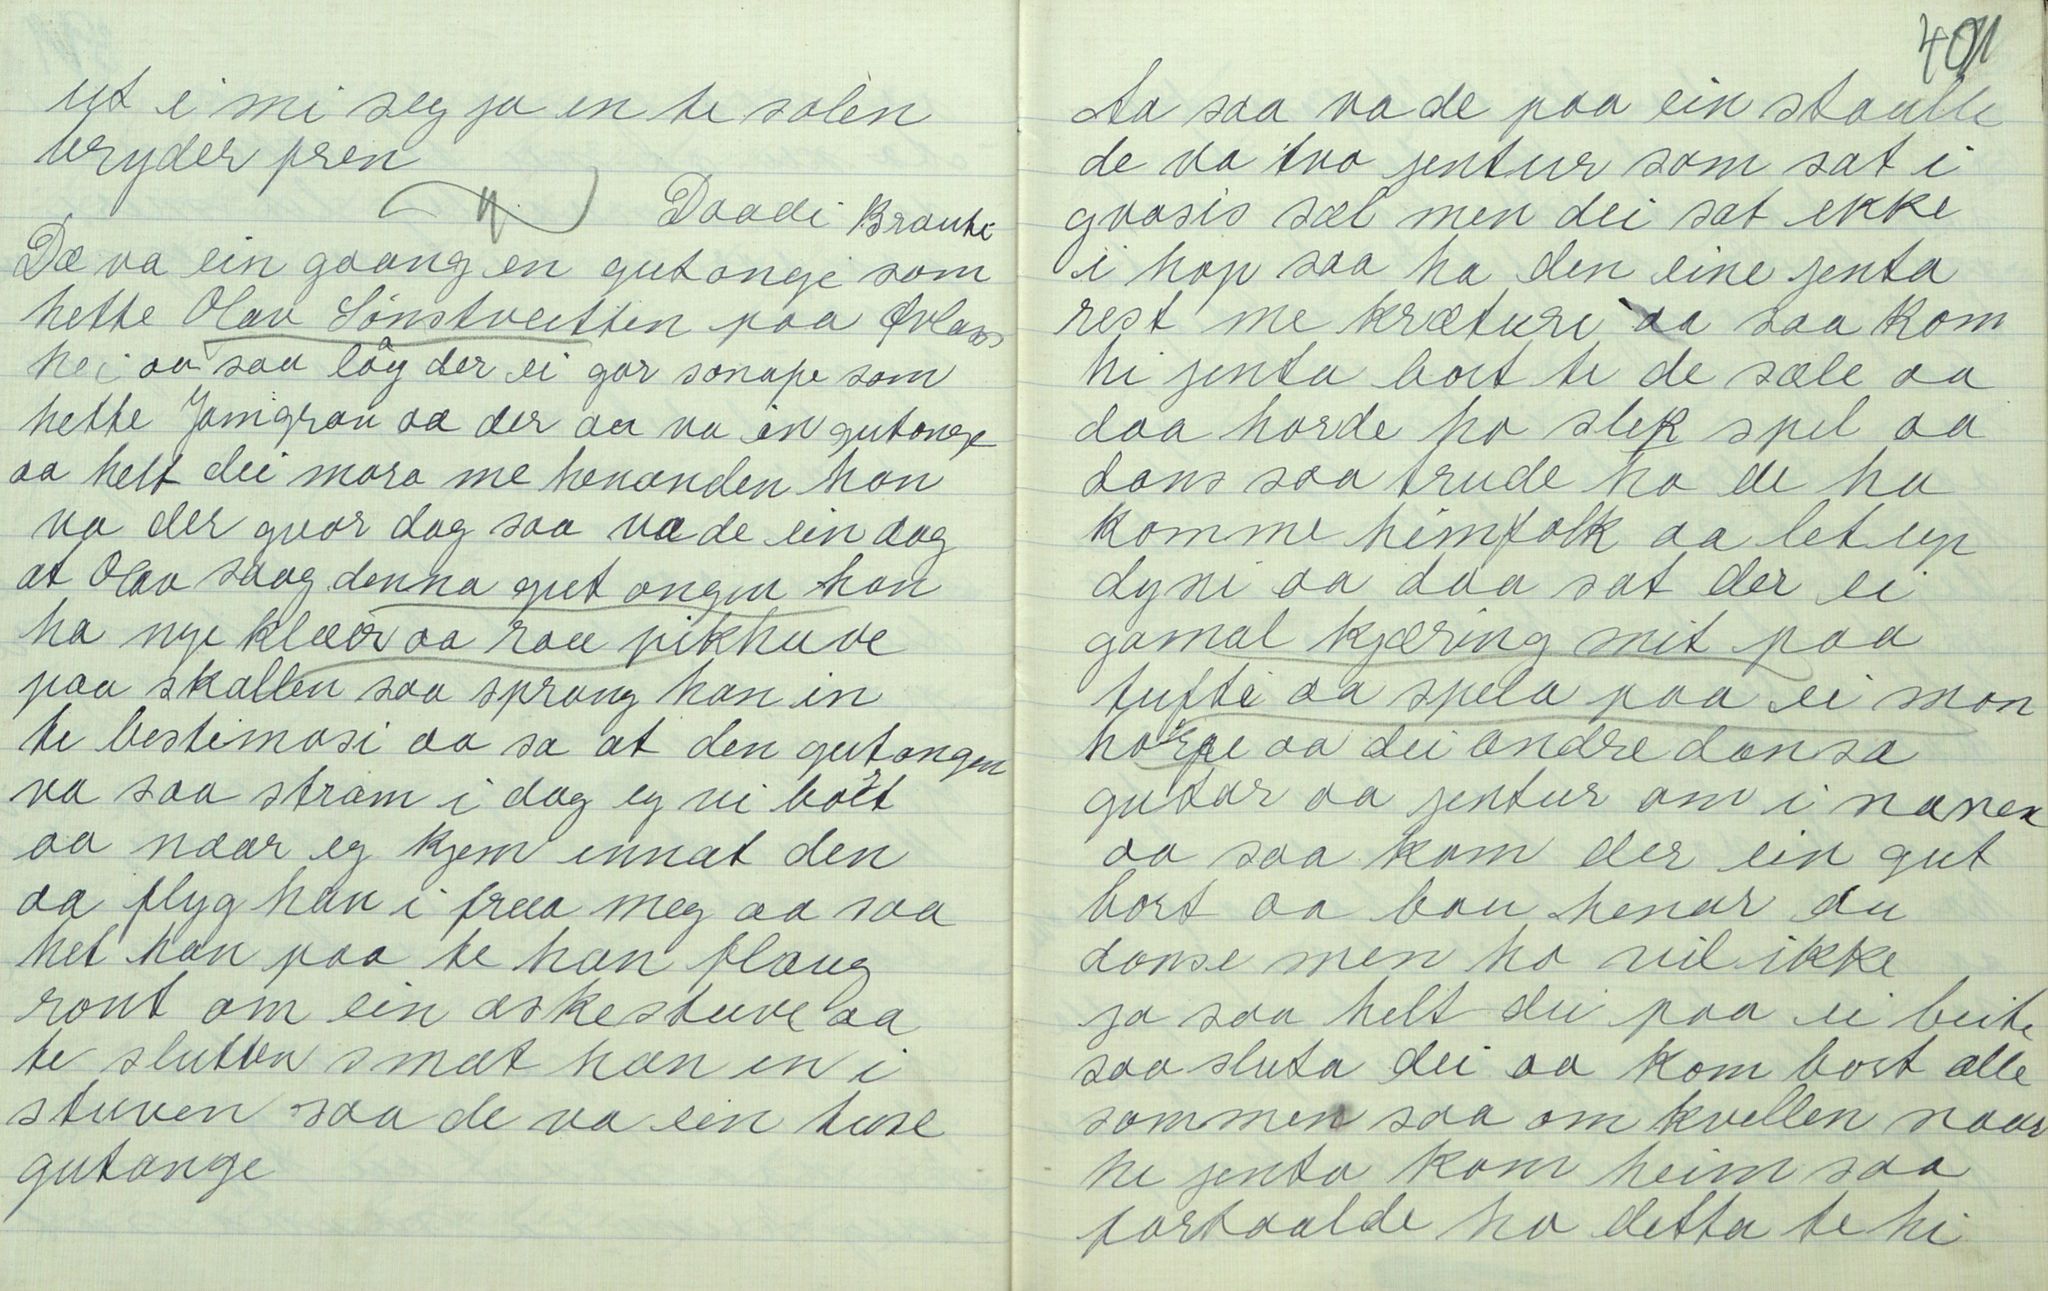 ut i mi seg ja en te solen
bryder fren
Daadi Braute
Dæ va ein gaang en gutonge som
hette Olav Lønstveitten paa Øvlans
hei aa saa låg der ei gar sonafe som
hette Jamgrav aa der aa va en gutonge
aa helt dei moro me henanden han
va der gvor dag saa va de ein dag
at Olav saag denna gut ongen han
ha nye klæer aa rau pikhuve
paa skallen saa sprang han in
te bestemosi aa sa at den gutongen
va saa stram i dag eg vi bort
aa naar eg kjem innat den
aa flyg han i fraa meg aa saa
het han paa te han flaug
ront om ein askestuve aa
te slutten smat han en i
stuven saa de va ein tuse
gutonge
401
Aa saa va de paa ein staulle
de va two jentur som sat i
gvasis sæl men dei sat ekke
i hop saa ha den eine jenta
rest me kræture aa saa kom
hi jenta bort te de sæle aa
daa horde ho slek spel aa
dans saa trude ho de ha
komme heimfolk aa let up
dyni aa daa sat der ei
gamal kjæring mit paa
tufti aa spela paa ei mon
horpe aa dei andre dansa
gutar aa jentur om i nanen
aa saa kom der ein gut
bort aa bau henar du
danse men ho vil ikke
ja saa helt dei paa ei beite
saa sluta dei aa kom bort alle
sommen saa om kvellen naar
hi jenta kom heim saa
fortaalde ho detta te hi